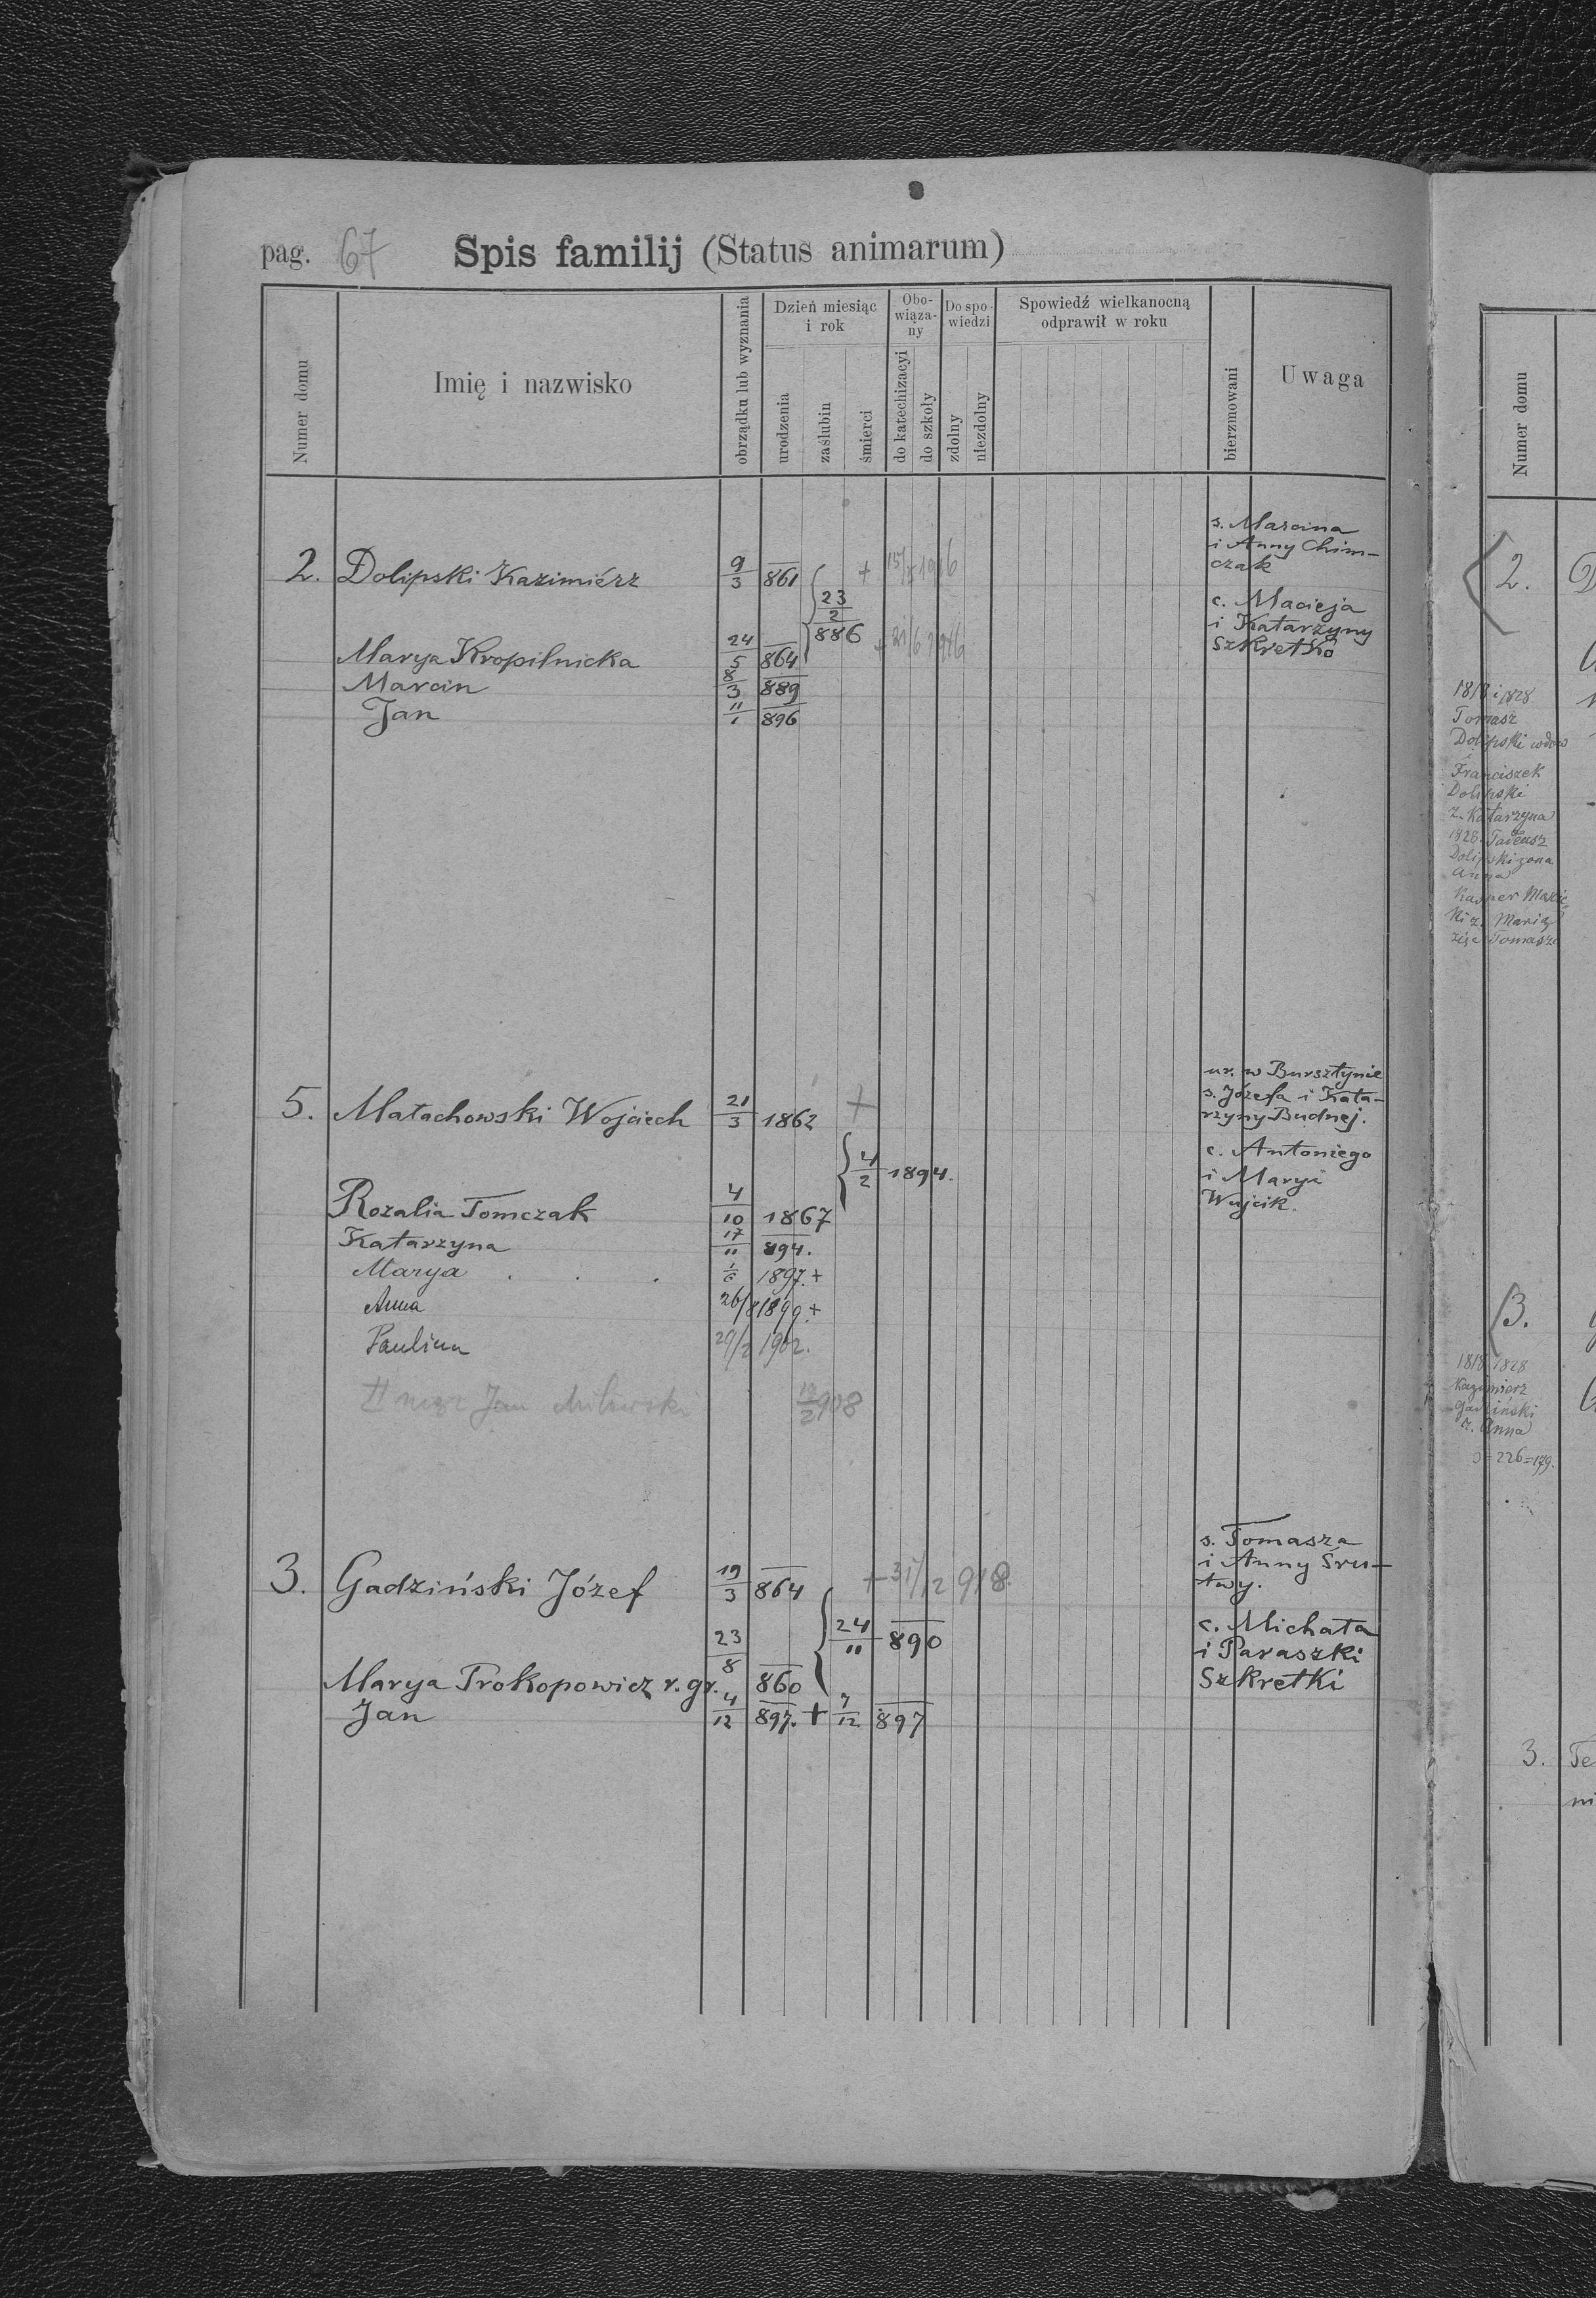 pag. 67 Spis familij (Status animarum)
Numer domu
Imię i nazwisko
obrządku lub wyznania
Dzień miesiąc i rok
urodzenia
zaślubin
śmierci
Obowiąza-ny
do katechizacyi
do szkoły
Do spo-wiedzi
zdolny
niezdolny
Spowiedź wielkanocną
odprawił w roku
bierzmowani
Uwaga
s. Marcina
i Anny Chim-
czak
2. Dolipski Kazimiérz 9/3 861 + 15/5 1916
23/2 886
c. Macieja
i Katarzyny
Szkretko
Marya Kropilnicka 24/5 864
Marcin 8/3 889
Jan 11/1 896
ur. w Bursztynie
s. Józefa i Kata-
rzyny Budnej.
5. Małachowski Wojciech 21/3 1862 +
4/2 1894.
c. Antoniego
i Maryi
Wujcik.
Rozalia Tomczak 4/10 1867
Katarzyna 17/11 894.
Marya . . . 1/6 1897.+
Anna 26/8 1899.+
Paulina 29/2 1902.
II mąż Jan 12/2 908
s. Tomasza
i Anny Sru-
twy.
3. Gadziński Józef 19/3 864 + 31/12 918.
24/11 890
c. Michała
i Paraszki
Szkretki
Marya Prokopowicz r. gr. 23/8 860
Jan 4/12 897. + 7/12 897
Numer domu
2.
1818 i 1828
Tomasz
Dolipski wdow
Franciszek
Dolipski
ż. Katarzyna
1828. Tadeusz
Dolipski żona
Anna
Kasper
ki ż. Maria
zięć Tomasza
3.
1818 1828
Kazimierz
Gadziński
ż. Anna
226=179.
3. Te